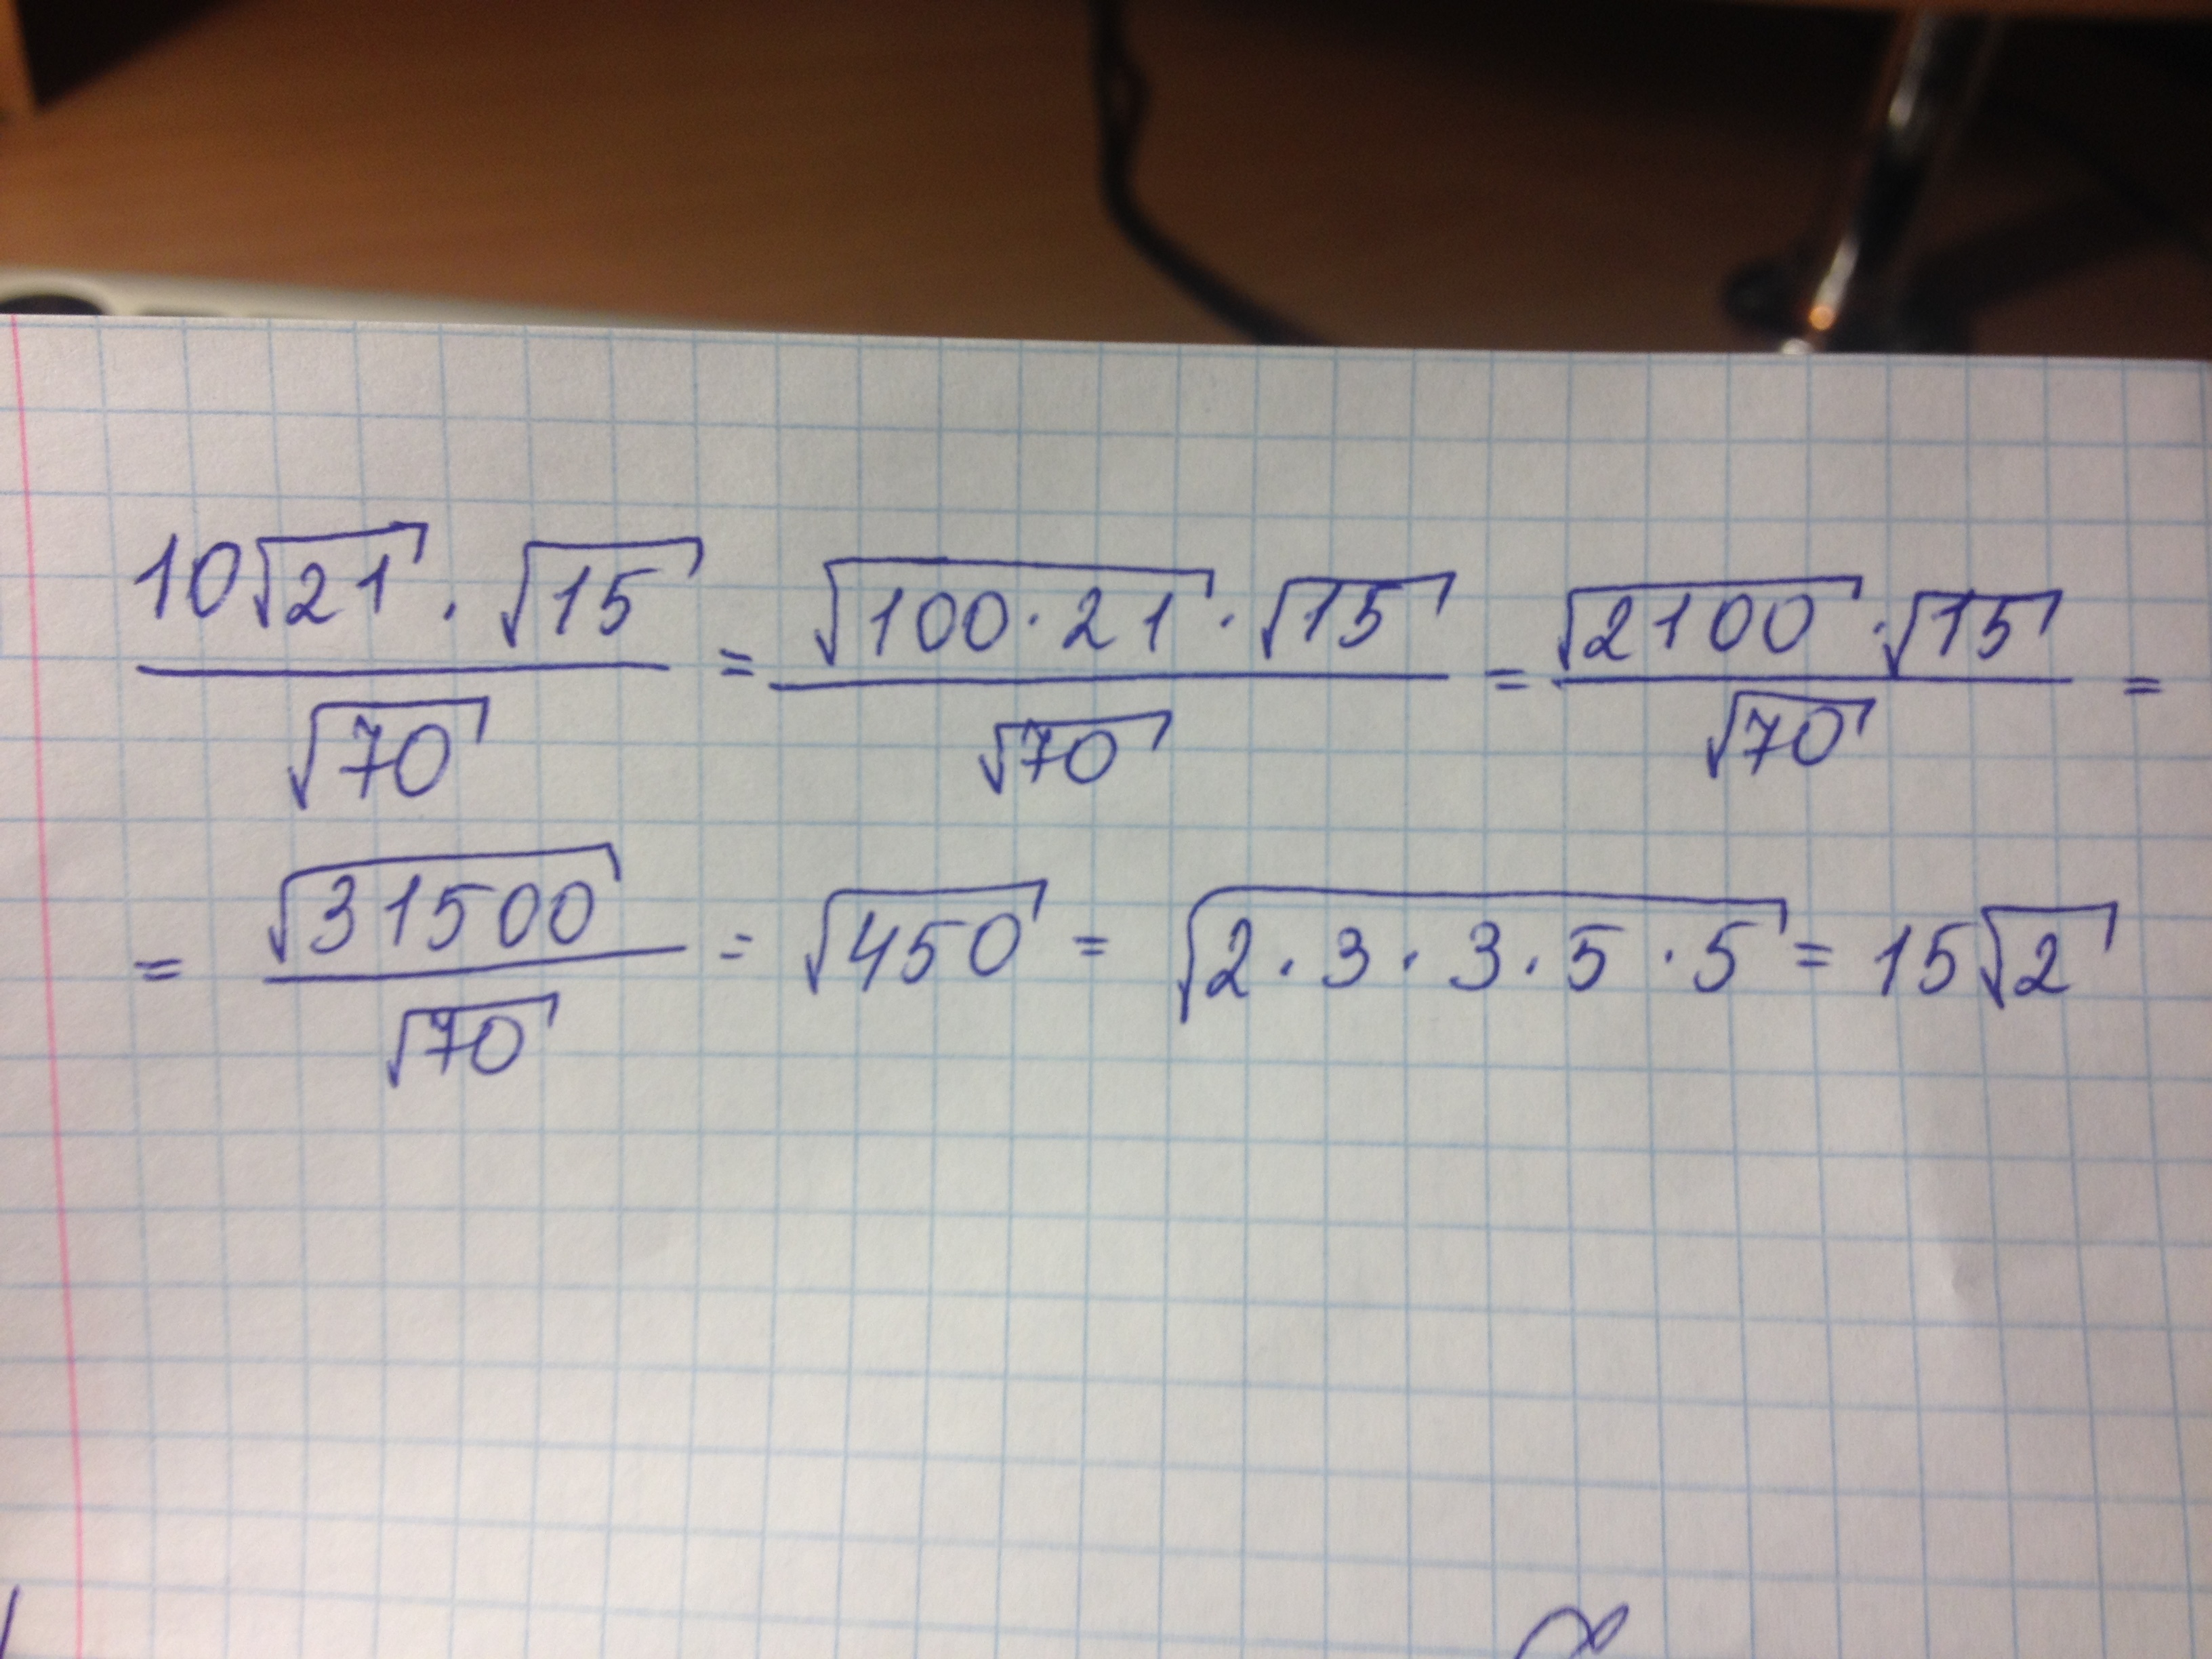 10√21 · √15 / √70 = √100·21 · √15 / √70 = √2100 · √15 / √70 =
= √31500 / √70 = √450 = √2·3·3·5·5 = 15√2